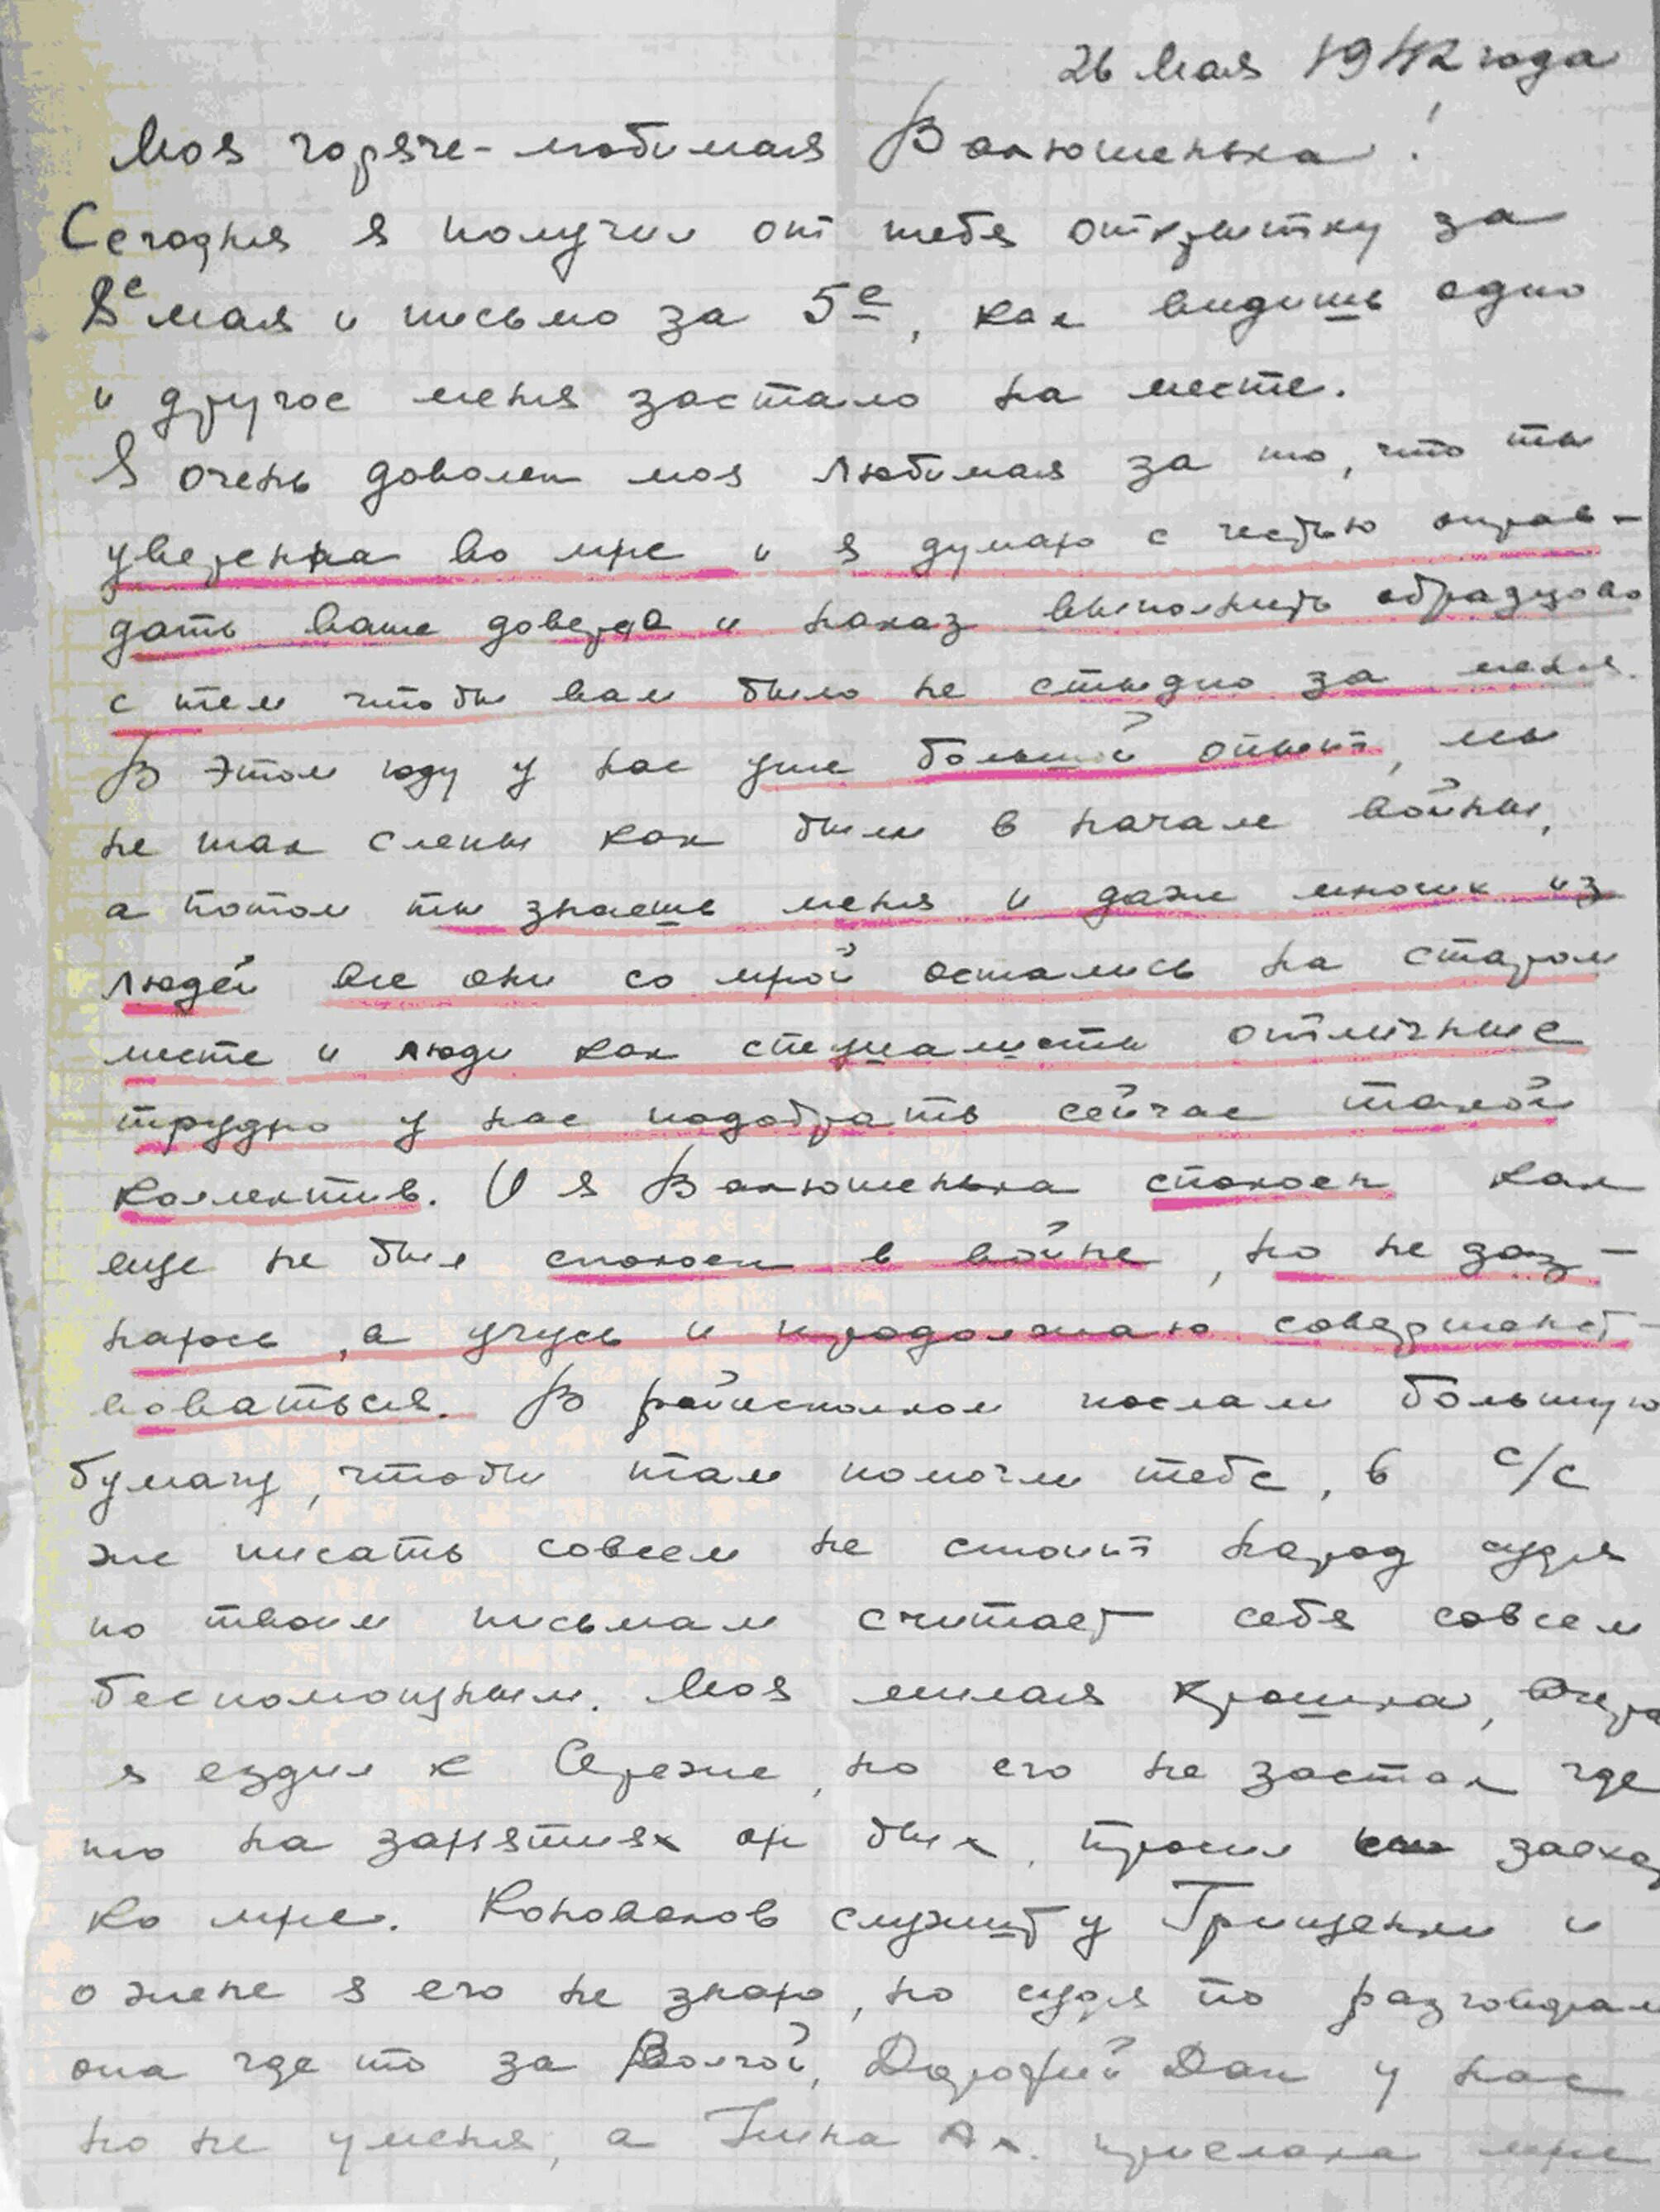 26 мая 1942 года
Моя горяче-любимая Валюшенька!
Сегодня я получил от тебя открытку за
8е мая и письмо за 5е, как видишь одно
и другое меня застало на месте.
Я очень доволен моя любимая за то, что ты
уверенна во мне и я думаю с честью оправ-
дать ваше доверие и наказ выполнить образцово
с тем чтобы вам было не стыдно за меня.
В этом году у нас уже большой опыт, мы
не так слепы как были в начале войны,
а потом ты знаешь меня и даже многих из
людей все они со мной остались на старом
месте и люди как специалисты отличные
трудно у нас подобрать сейчас такой
коллектив. И я Валюшенька спокоен как
еще не был спокоен в войне, но не заз-
наюсь, а учусь и продолжаю совершенст-
воваться. В райисполком послали большую
бумагу, чтобы там помогли тебе, в с/с
же писать совсем не стоит народ судя
по твоим письмам считает себя совсем
беспомощным. Моя милая крошка, вчера
я ездил к Сереже, но его не застал где
то на занятиях он был, просил
ко мне. Коновалов служит у Грищенки и
о жене я его не знаю, но судя по разговорам
она где то за Волгой, Дорофей Дан у нас
но не у меня, а Нина Ал. прислала мне